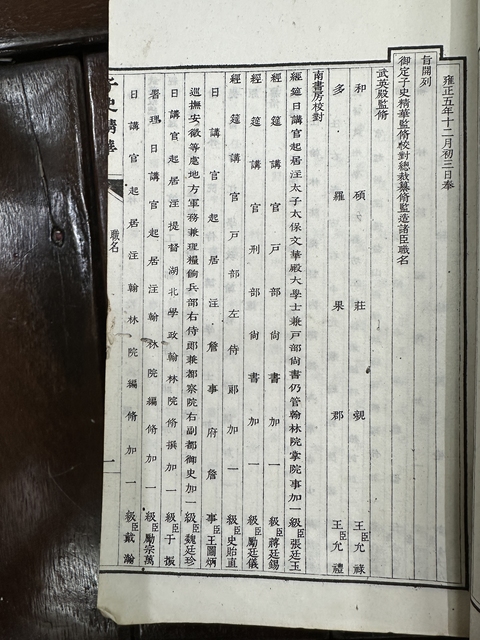 雍正五年十二月初三日奉
旨開列
御定子史精華監脩校對總裁纂脩監造諸臣職名
武英殿監脩
和碩莊親王臣允祿
多羅果郡王臣允禮
南書房校對
經筵日講官起居注太子太保文華殿大學士兼戶部尙書仍管翰林院掌院事加一級臣張廷玉
經筵講官戶部尙書加一級臣蔣廷錫
經筵講官刑部尙書加一級臣勵廷儀
經筵講官戶部左侍郞加一級臣史貽直
日講官起居注詹事府詹事臣王圖炳
巡撫安徽等處地方軍務兼理糧餉兵部右侍郞兼都察院右副都御史加一級臣魏廷珍
日講官起居注提督湖北學政翰林院脩撰加一級臣于振
署理日講官起居注翰林院編脩加一級臣勵宗萬
日講官起居注翰林院編脩加一級臣戴瀚
子史精華
職名
一